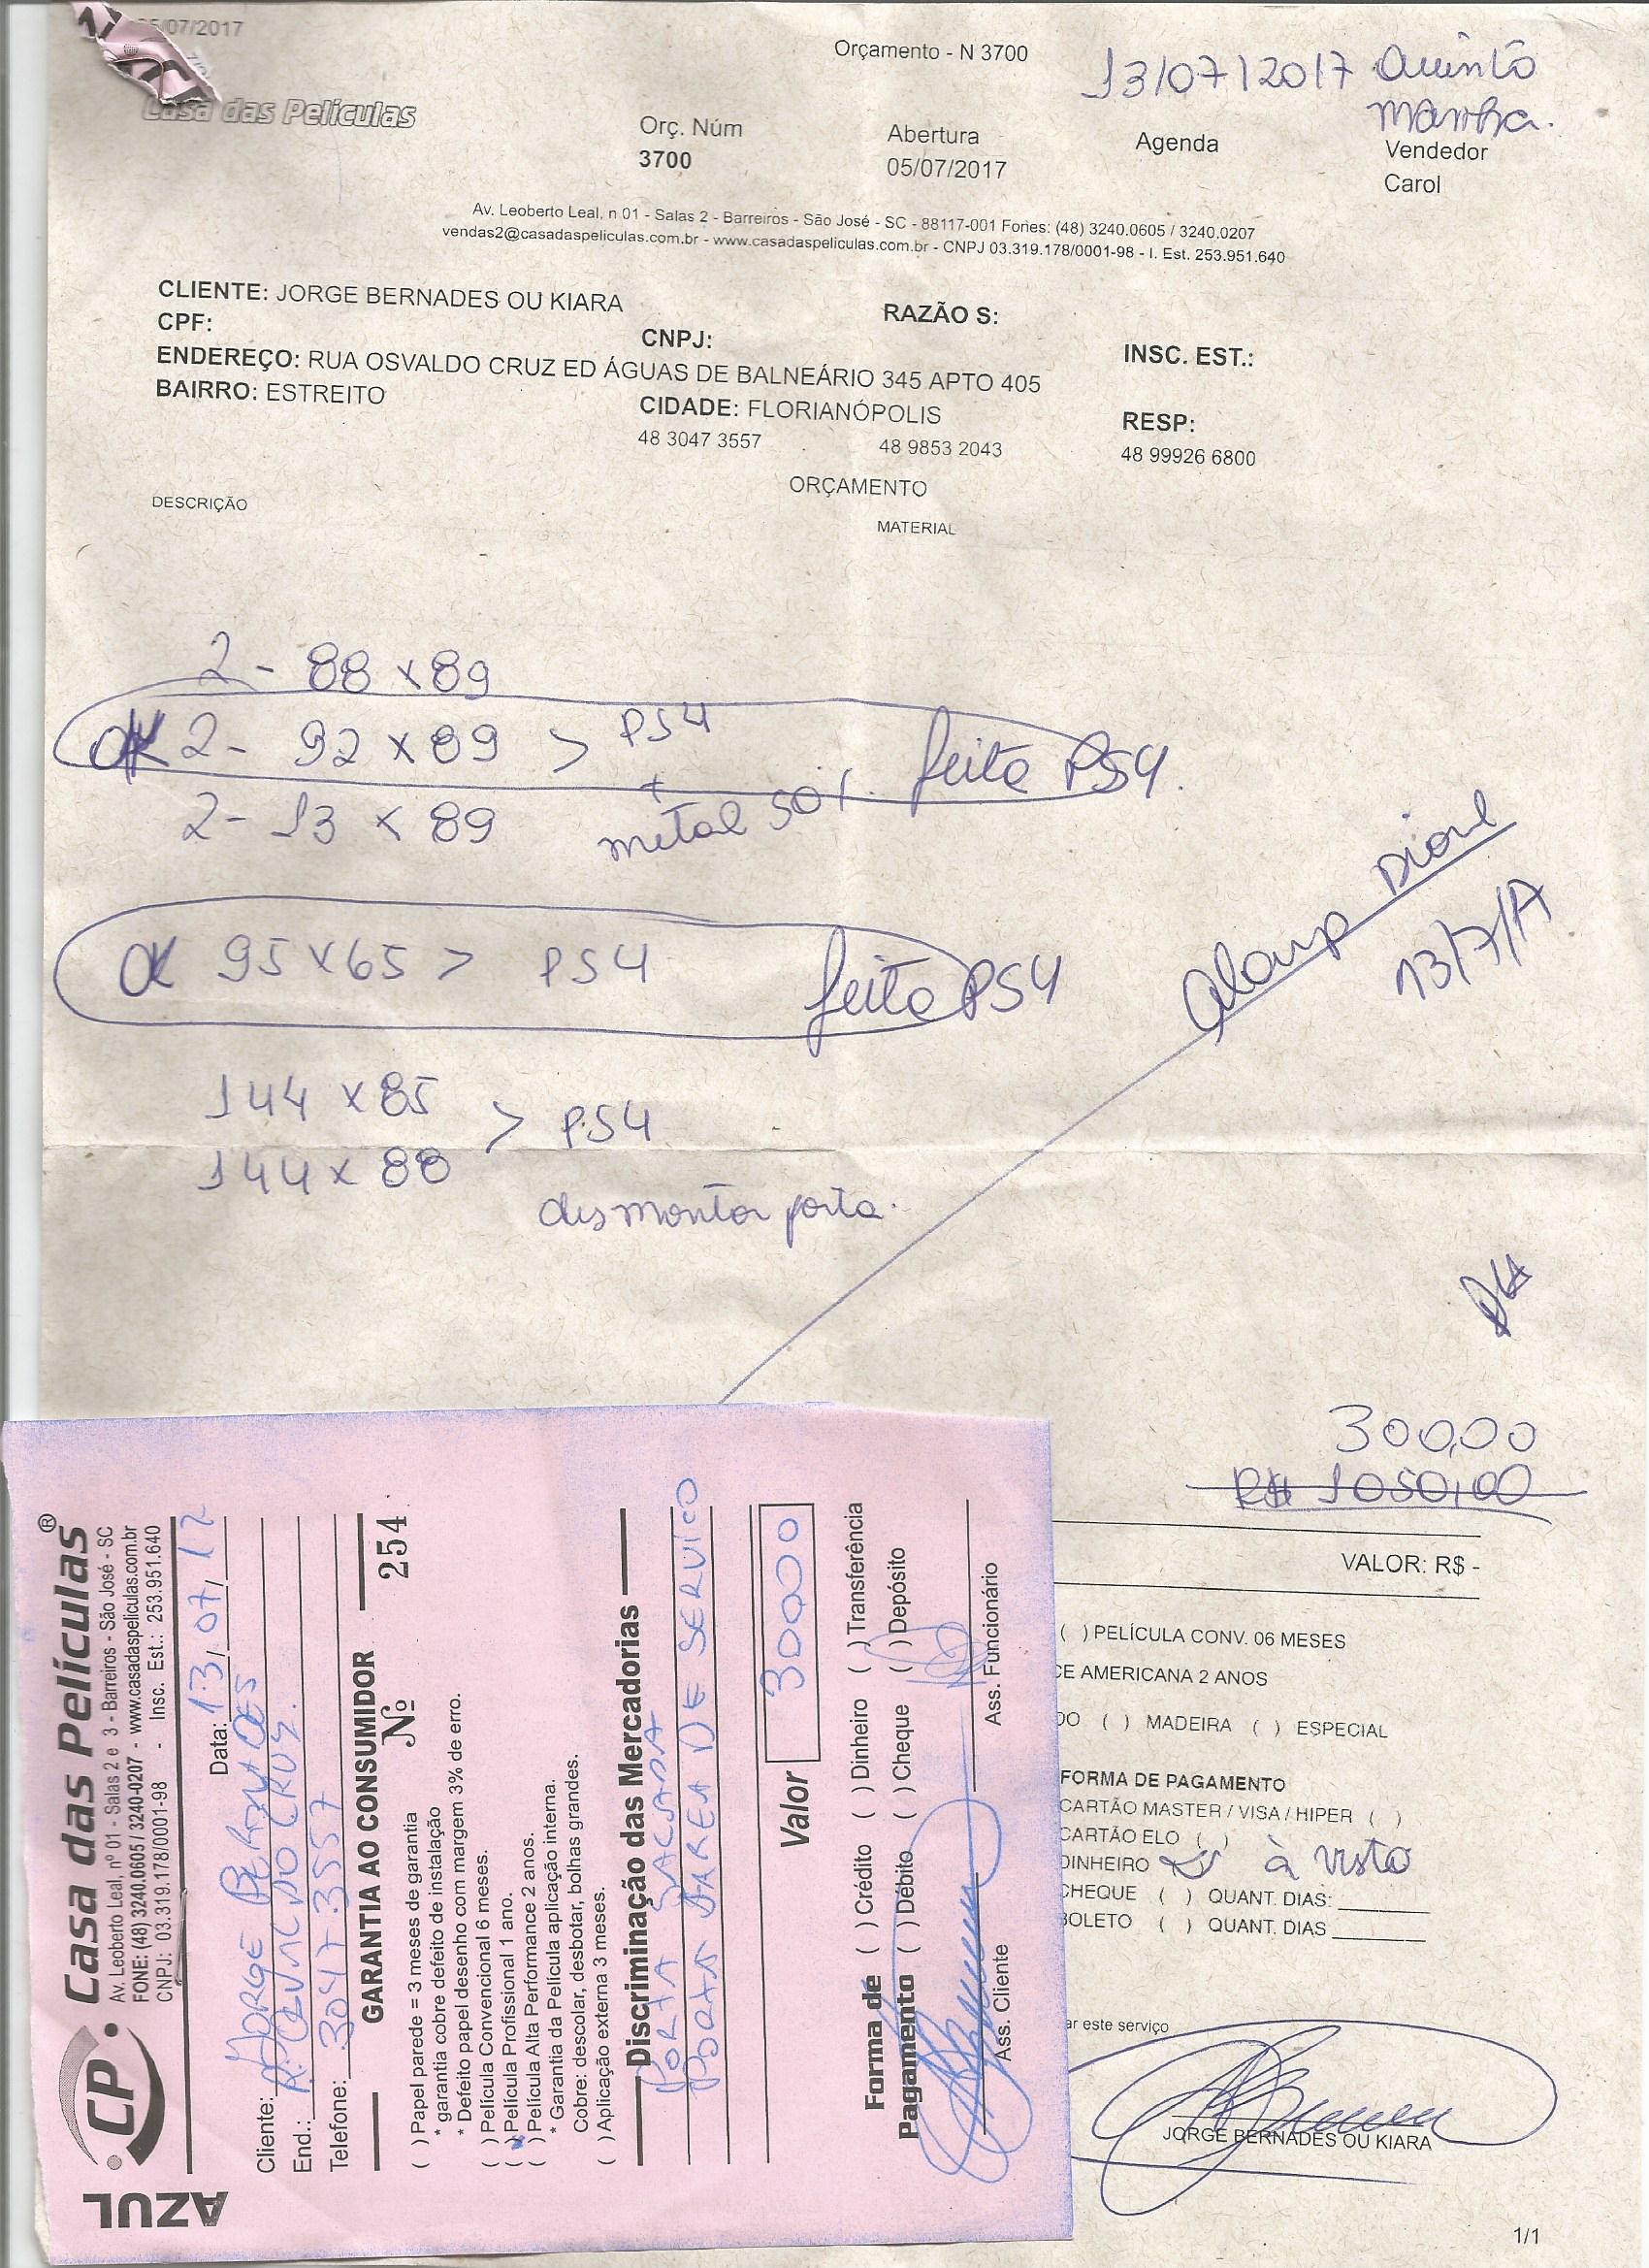 5/07/2017
Orçamento - N 3700
13/07/2017 Quinta
manhã.
Casa das Películas
Orç. Núm
3700
Abertura
05/07/2017
Agenda
Vendedor
Carol
Av. Leoberto Leal, n 01 - Salas 2 - Barreiros - São José - SC - 88117-001 Fones: (48) 3240.0605 / 3240.0207
vendas2@casadaspeliculas.com.br - www.casadaspeliculas.com.br - CNPJ 03.319.178/0001-98 - I. Est. 253.951.640
CLIENTE: JORGE BERNADES OU KIARA
RAZÃO S:
CPF:
CNPJ:
INSC. EST.:
ENDEREÇO: RUA OSVALDO CRUZ ED ÁGUAS DE BALNEÁRIO 345 APTO 405
BAIRRO: ESTREITO
CIDADE: FLORIANÓPOLIS
RESP:
48 3047 3557
48 9853 2043
48 99926 6800
ORÇAMENTO
DESCRIÇÃO
MATERIAL
2 - 88 x 89
OK 2 - 92 x 89 > PS4 feito PS4.
+
2 - 13 x 89 metal 50%
OK 95 x 65 > PS4 feito PS4
13/7/17
144 x 85
> PS4
144 x 88
desmontar porta.
300,00
R$ 1050,00
VALOR: R$ -
( ) PELÍCULA CONV. 06 MESES
CE AMERICANA 2 ANOS
DO ( ) MADEIRA ( ) ESPECIAL
FORMA DE PAGAMENTO
CARTÃO MASTER / VISA / HIPER ( )
CARTÃO ELO ( )
DINHEIRO à vista
CHEQUE ( ) QUANT. DIAS:
BOLETO ( ) QUANT. DIAS
ar este serviço
JORGE BERNADES OU KIARA
1/1
AZUL
CP Casa das Películas®
Av. Leoberto Leal, nº 01 - Salas 2 e 3 - Barreiros - São José - SC
FONE: (48) 3240.0605 / 3240-0207 - www.casadaspeliculas.com.br
CNPJ: 03.319.178/0001-98 - Insc. Est.: 253.951.640
Data: 13/07/17
Cliente: JORGE BERNADES
End.: R: OSVALDO CRUZ.
Telefone: 3047 3557
GARANTIA AO CONSUMIDOR
Nº 254
( ) Papel parede = 3 meses de garantia
* garantia cobre defeito de instalação
* Defeito papel desenho com margem 3% de erro.
( ) Película Convencional 6 meses.
(x) Película Profissional 1 ano.
( ) Película Alta Performance 2 anos.
* Garantia da Película aplicação interna.
Cobre: descolar, desbotar, bolhas grandes.
( ) Aplicação externa 3 meses.
Discriminação das Mercadorias
PORTA SACADA
PORTA AREA DE SERVICO
Valor 300,00
Forma de Pagamento
( ) Crédito ( ) Dinheiro ( ) Transferência
( ) Débito ( ) Cheque ( ) Depósito
Ass. Cliente
Ass. Funcionário